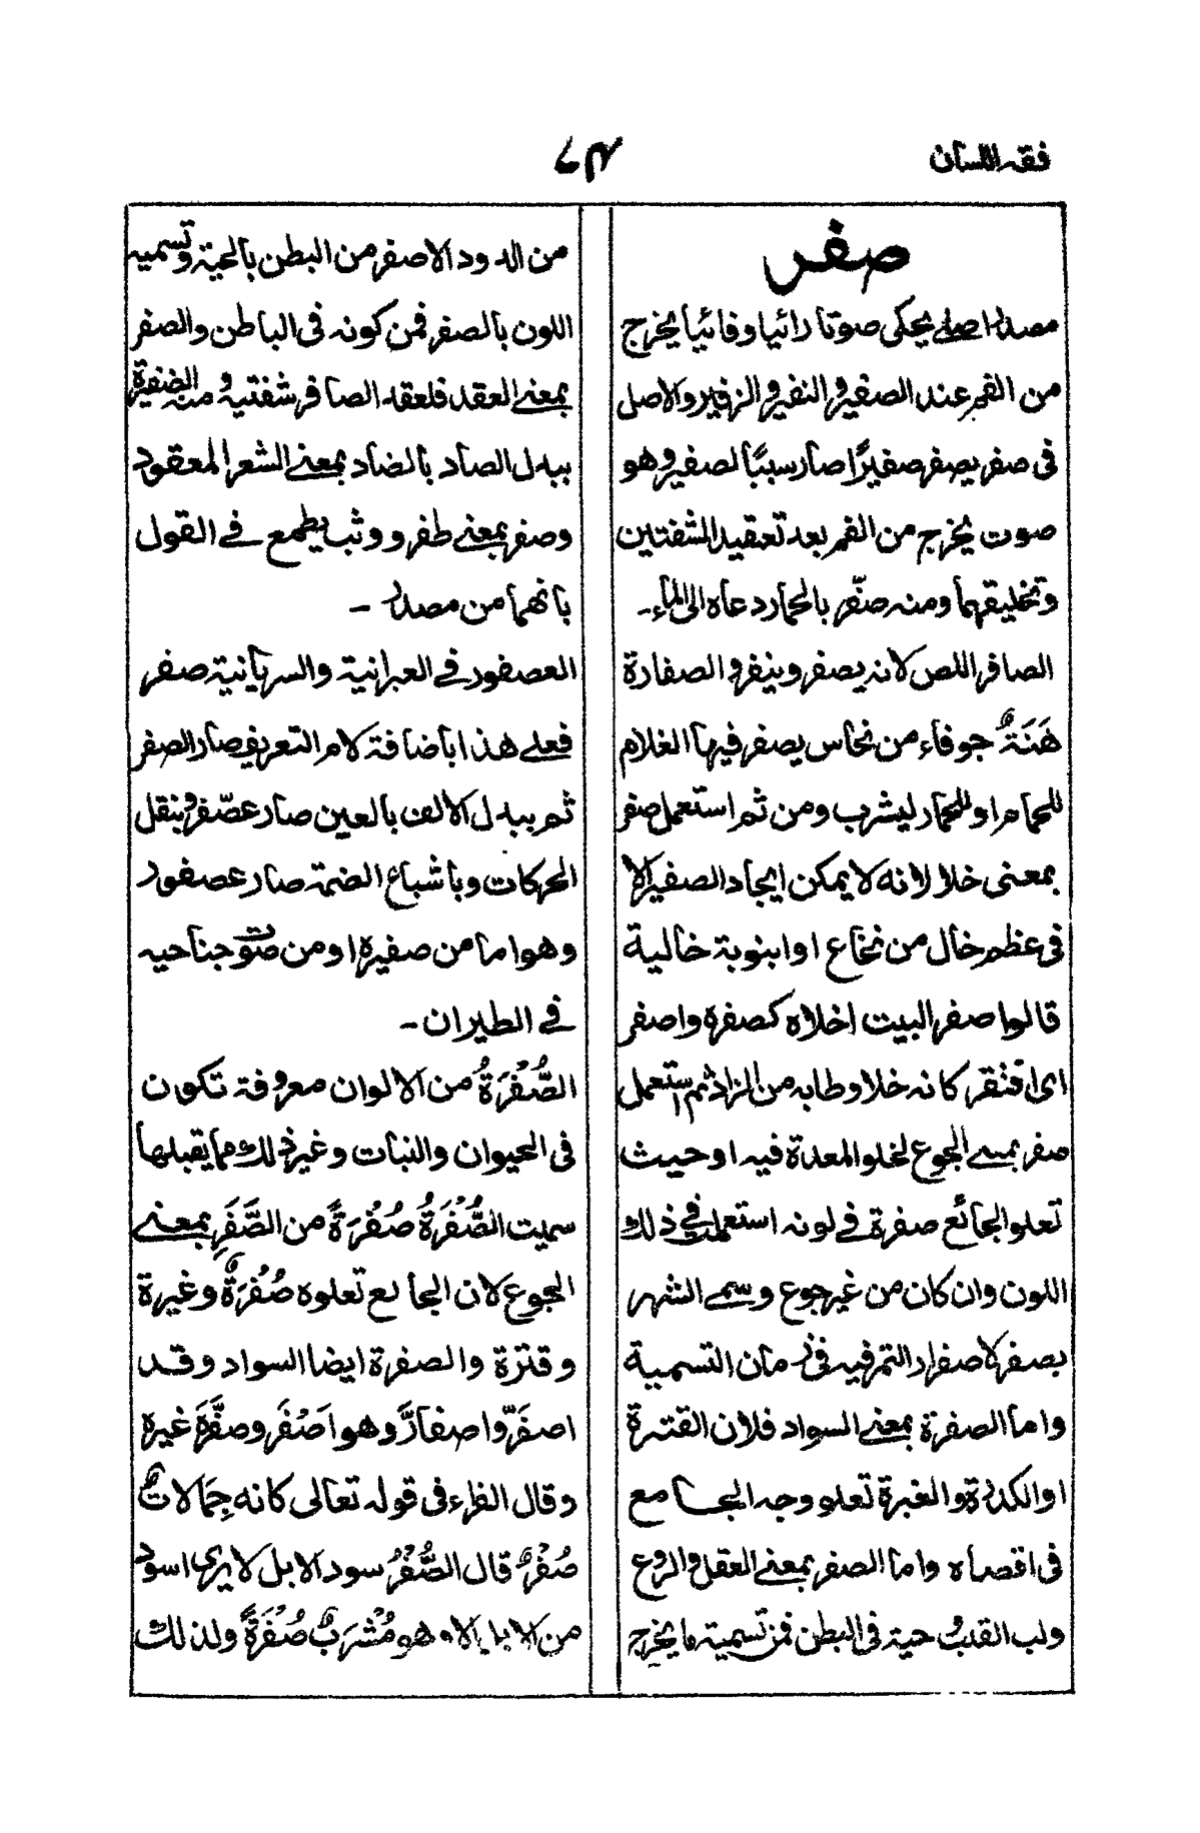 فقه اللسان
صفر
مصدر اصلي يحكى صوتا رائيا وفائيا يخرج
من الفم عند الصفير والنفير والزفير والاصل
فى صفر يصفر صفيرًا صار سببًا لصفير وهو
صوت يخرج من الفم بعد تعقيد الشفتين
وتخليقهما ومنه صفّر بالحمار دعاه الى الماء ـ
الصافر اللص لانه يصفر وينفر والصفارة
هَنَةٌ جوفاء من نحاس يصفر فيها الغلام
للحمام او للحمار ليشرب ومن ثم استعمل صفر
بمعنى خلا لانه لا يمكن ايجاد الصفير الا
فى عظم خال من نخاع او ابنوبة خالية
قالوا صفر البيت اخلاه كصفره واصفر
اى افتقر كانه خلا وطابه من الزاد ثم استعمل
صفر بمعنے الجوع لخلو المعدة فيه او حيث
تعلو الجائع صفرة فے لونه استعملت فے ذلك
اللون وان كان من غير جوع وسمے الشهر
بصفر لاصفرار التمر فيه فى زمان التسمية
واما الصفرة بمعنے السواد فلان القترة
او الكدرة والغبرة تعلو وجه الجامع
فى اقصاه واما الصفر بمعنے العقل والروع
ولب القلب وحية فى البطن فمن تسمية ما يخرج
من الدود الاصفر من البطن بالحية وتسميه
اللون بالصفر فمن كونه فى الباطن والصفر
بمعنے العقد فلعقد الصافر شفتيه ومنه الضفيرة
ببدل الصاد بالضاد بمعنے الشعر المعقود
وصفر بمعنے طفر ووثب يطمع فے القول
بانهما من مصدر ـ
العصفور فے العبرانية والسريانية صفر
فعلے هذا باضافة لام التعريف صار الصفر
ثم ببدل الالف بالعين صار عصّفر وبنقل
الحركات وباشباع الضمة صار عصفور
وهو اما من صفيره او من صوت جناحيه
فے الطيران ـ
الصُّفْرَةُ من الالوان معروفة تكون
فى الحيوان والنبات وغير ذلك مما يقبلها
سميت الصُّفْرَةُ صُفْرَةً من الصَّفَرِ بمعنے
الجوع لان الجائع تعلوه صُفْرَةٌ وغيرة
وقترة والصفرة ايضا السواد وقد
اصفَرّ واصفارَّ وهو اَصْفَر وصفَّرَهَ غيره
وقال الفراء فى قوله تعالى كانه جِمَالاتٌ
صُفْرٌ قال الصُّفْرُ سود الابل لا يرى اسود
من الابل الا وهو مُشْرَبٌ صُفْرَةً ولذلك